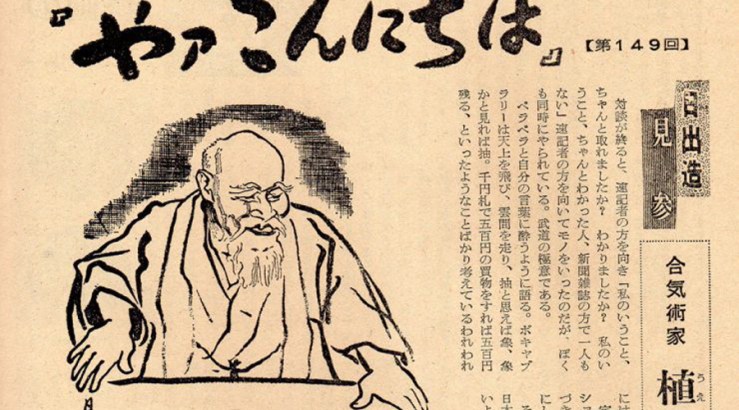 『やァこんにちは』
【第149回】
日出造
見参
合気術家
植
うえ
対談が終ると、速記者の方を向き「私のいうこと、
ちゃんと取れましたか? わかりましたか? 私のい
うこと、ちゃんとわかった人、新聞雑誌の方で一人も
ない」速記者の方を向いてモノをいったのだが、ぼく
も同時にやられている。武道の極意である。
ペラペラと自分の言葉に酔うように語る。ボキャブ
ラリーは天上を飛び、雲間を走り、抽と思えば象、象
かと見れば抽。千円札で五百円の買物をすれば五百円
残る、といったようなことばかり考えているわれわれ
には
ショ
づき
に
そ
日本
いよ